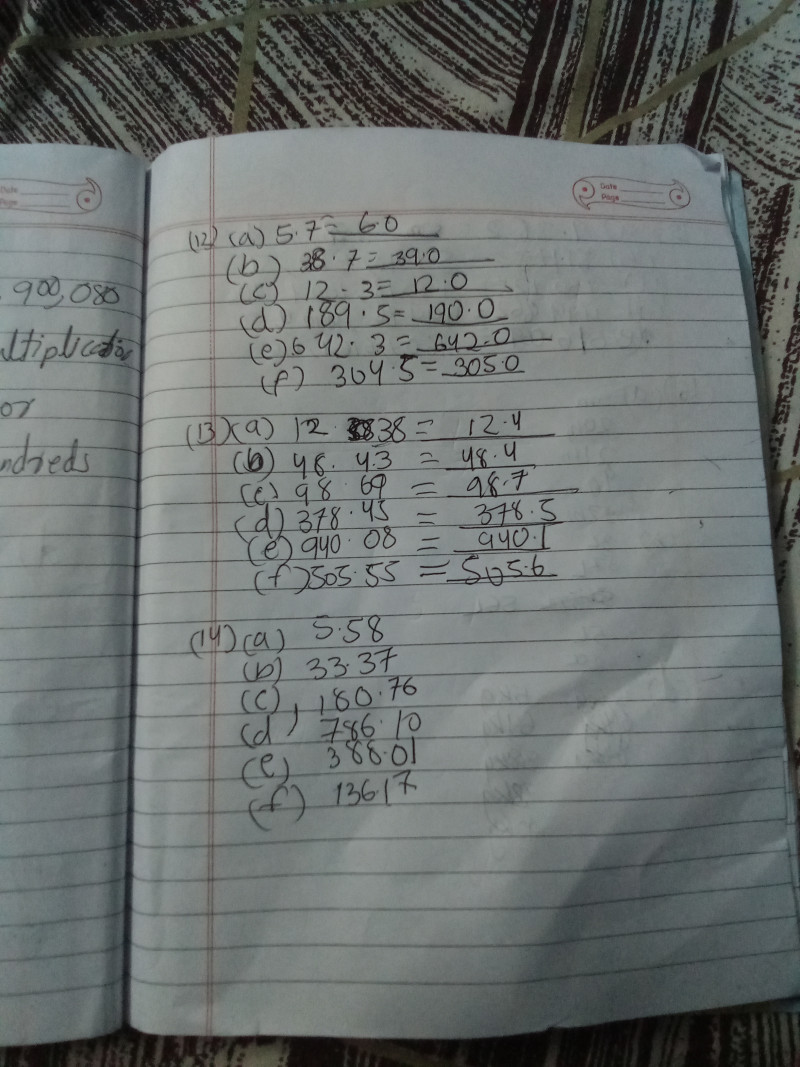 Date
Page
900,080
ultiplication
or
ndreds
Date
Page
(12) (a) 5.7 = 6.0
(b) 38.7 = 39.0
(c) 12.3 = 12.0
(d) 189.5 = 190.0
(e) 642.3 = 642.0
(f) 304.5 = 305.0
(13) (a) 12.38 = 12.4
(b) 48.43 = 48.4
(c) 98.69 = 98.7
(d) 378.45 = 378.5
(e) 940.08 = 940.1
(f) 505.55 = 505.6
(14) (a) 5.58
(b) 33.37
(c) 180.76
(d) 786.10
(e) 388.01
(f) 136.17